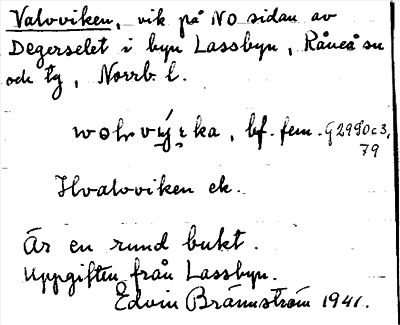 Valvviken, vik på NO sidan av
Degerselet i byn Lassbyn, Råneå sn
och tg, Norrb. l.
bf. fem. G2990c3,
79
Hvalvviken ek.
Är en rund bukt.
Uppgiften från Lassbyn.
Edvin Brännström 1941.